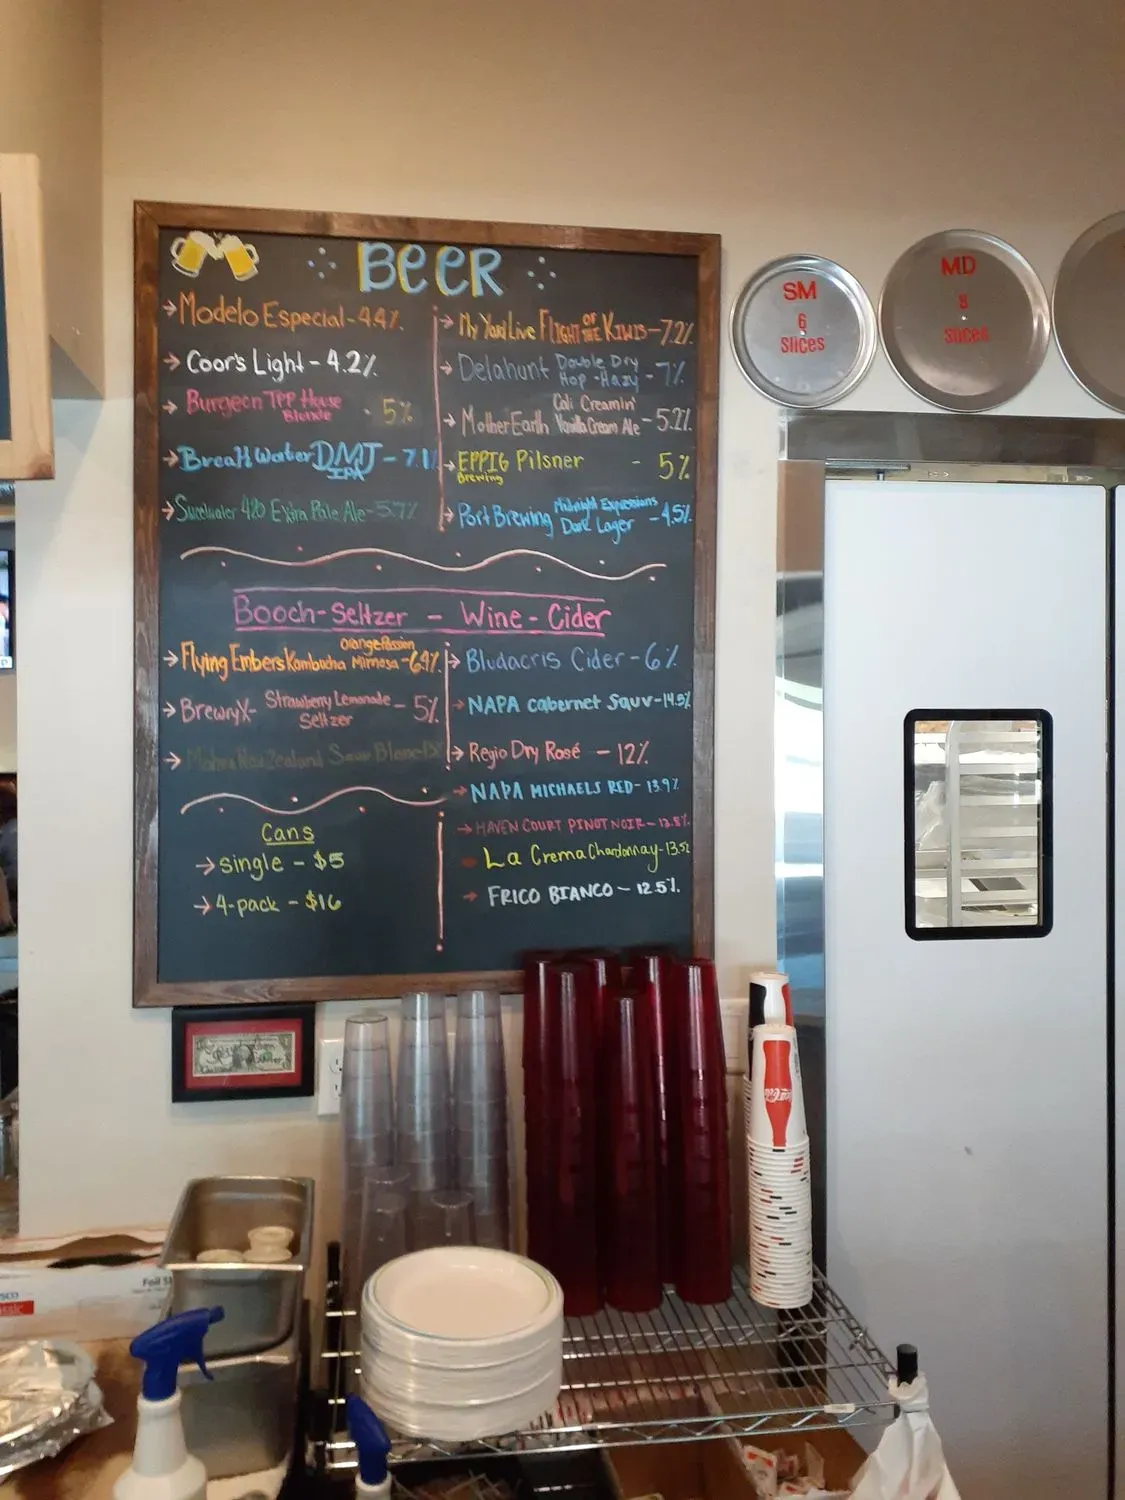 BEER
→ Modelo Especial - 4.4%
→ Coor's Light - 4.2%
→ Burgeon TPP House
Blonde - 5%
→ Breakwater DMJ - 7.1%
IPA
→ Sweetwater 420 Extra Pale Ale - 5.7%
→ My Yard Live FLIGHT OF THE KIWIS - 7.2%
→ Delahunt Double Dry
Hop - Hazy - 7%
→ Mother Earth Cali Creamin'
Vanilla Cream Ale - 5.2%
→ EPPIG Pilsner - 5%
Brewing
→ Port Brewing Midnight Expressions
Dark Lager - 4.5%
Booch-Seltzer - Wine - Cider
→ Flying Embers Kombucha Orange Passion
Mimosa - 6.9%
→ BrewryX - Strawberry Lemonade
Seltzer - 5%
→ New Zealand Sauv Blanc
→ Bludacris Cider - 6%
→ NAPA cabernet Sauv - 14.5%
→ Regio Dry Rosé - 12%
→ NAPA MICHAELS RED - 13.9%
→ HAVEN COURT PINOT NOIR - 13.5%
→ La Crema Chardonnay - 13.5%
→ FRICO BIANCO - 12.5%
Cans
→ single - $5
→ 4-pack - $16
SM
6
slices
MD
8
slices
Coca-Cola
Foil